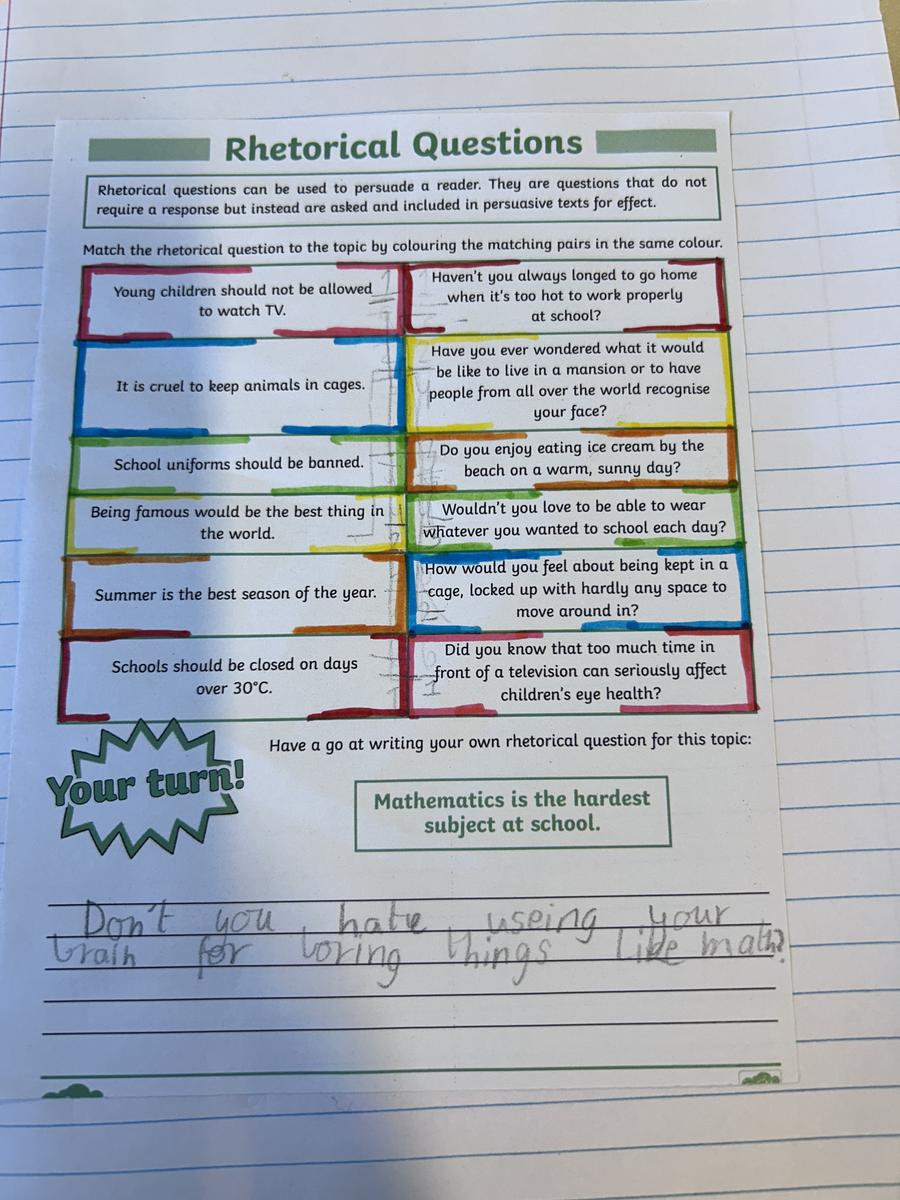 Rhetorical Questions
Rhetorical questions can be used to persuade a reader. They are questions that do not
require a response but instead are asked and included in persuasive texts for effect.
Match the rhetorical question to the topic by colouring the matching pairs in the same colour.
Young children should not be allowed
to watch TV.
Haven't you always longed to go home
when it's too hot to work properly
at school?
It is cruel to keep animals in cages.
Have you ever wondered what it would
be like to live in a mansion or to have
people from all over the world recognise
your face?
School uniforms should be banned.
Do you enjoy eating ice cream by the
beach on a warm, sunny day?
Being famous would be the best thing in
the world.
Wouldn't you love to be able to wear
whatever you wanted to school each day?
Summer is the best season of the year.
How would you feel about being kept in a
cage, locked up with hardly any space to
move around in?
Schools should be closed on days
over 30°C.
Did you know that too much time in
front of a television can seriously affect
children's eye health?
Your turn!
Have a go at writing your own rhetorical question for this topic:
Mathematics is the hardest
subject at school.
Don't you hate useing your
brain for boring things like math?